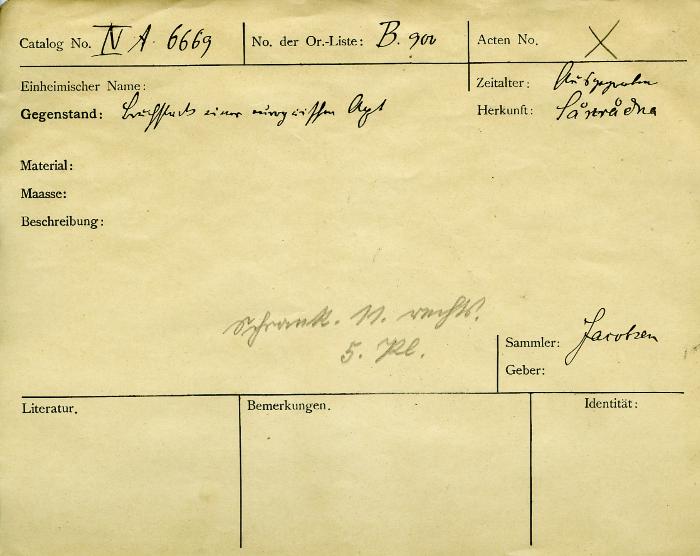 Catalog No. IV A 6669
No. der Or.-Liste: B. 900
Acten No. X
Einheimischer Name:
Zeitalter: Ausgegraben
Gegenstand: Bruchstück einer Axt
Herkunft:
Material:
Maasse:
Beschreibung:
Schrank. 11. rechts.
5. Pl.
Sammler: Jacobsen
Geber:
Literatur.
Bemerkungen.
Identität: